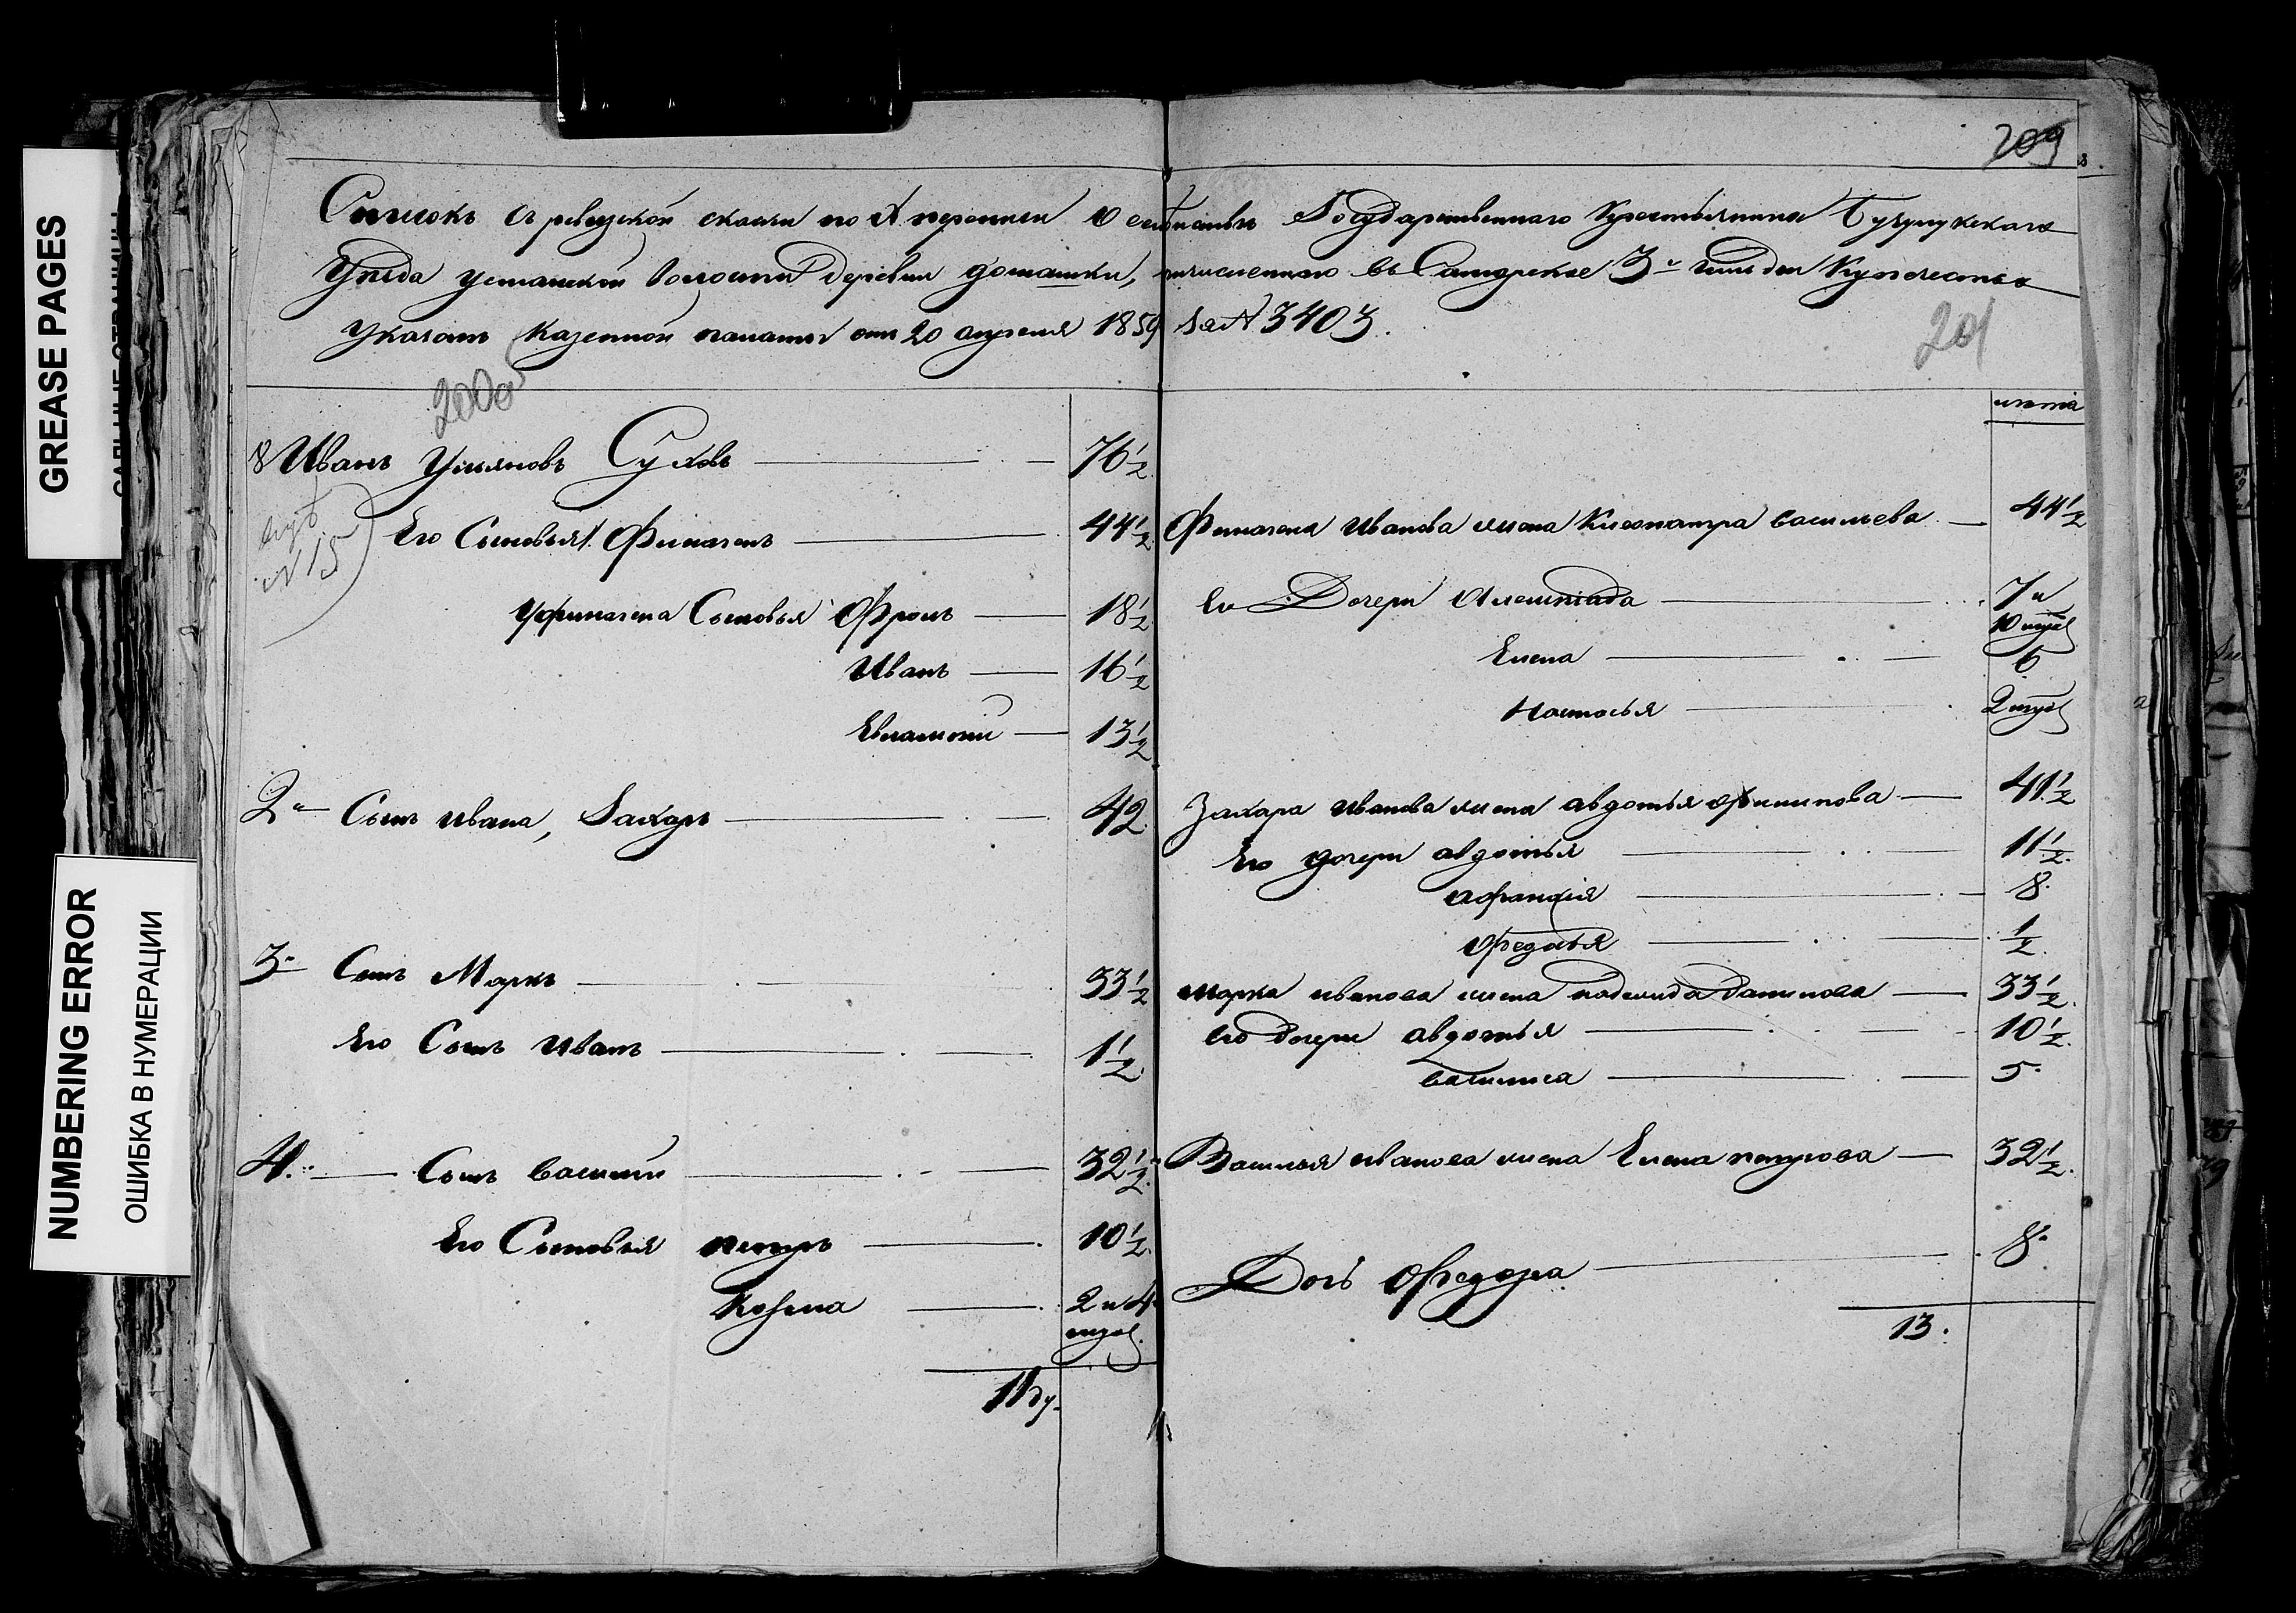 GREASE PAGES
NUMBERING ERROR
ОШИБКА В НУМЕРАЦИИ
209
Списокъ съ ревизской сказки по Х переписи о семействѣ Государственнаго Крестьянина Бузулукскаго
Уѣзда Волости Деревни Домашки, причисленнаго въ Самарское 3й Гильдіи Купечество
Указомъ Казенной палаты отъ 20 апреля 1859 за № 3403.
201
200об
лѣта
8 Иванъ Ульяновъ Суховъ 76 1/2
№ 15
Его Сыновья 1. Филагенъ 44 1/2
У Филагена Сыновья Фролъ 18 1/2
Иванъ 16 1/2
Евлампій 13 1/2
2й Сынъ Ивана, Захаръ 42
3й Сынъ Маркъ 33 1/2
Его Сынъ Иванъ 1 1/2
4. Сынъ Василій 32 1/2
Его Сыновья Петръ 10 1/2
Козьма 2 и 4
мѣс.
11
Филагена Иванова жена Клеопатра Васильева 44 1/2
Ея Дочери Алемпіада 7 и
10 мѣс
Елена 6
Настасья 2 мѣс
Захара Иванова жена Авдотья Филипова 41 1/2
Его дочери Авдотья 11 1/2
8
Федосья 1/2
Марка Иванова жена Надежда Данилова 33 1/2
Его Дочери Авдотья 10 1/2
Василиса 5
Василья Иванова жена Елена Петрова 32 1/2
Дочь Федора 8
13.